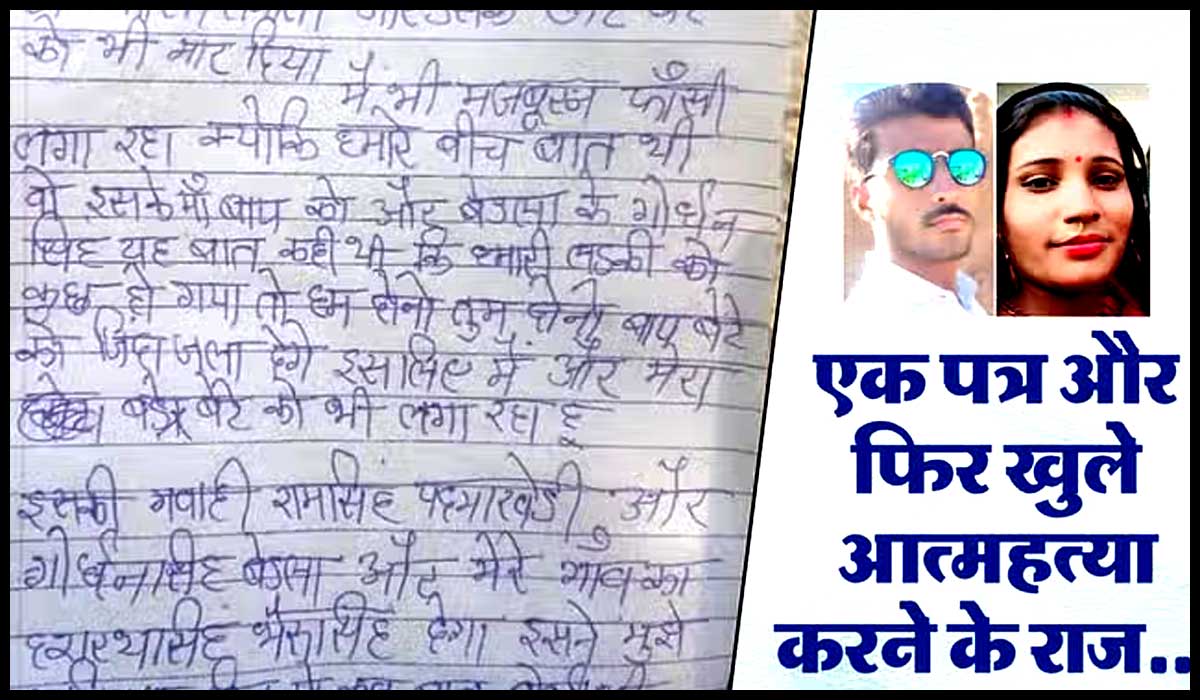 को भी मार दिया
मैं भी मजबूरन फाँसी
लगा रहा क्योकि हमारे बीच बात थी
वो इसके माँ बाप को और बेडला के गोर्धन
सिंह यह बात कही थी कि हमारी लडकी को
कुछ हो गया तो हम दोनो तुम दोनो बाप बेटे
को जिंदा जला देंगे इसलिए मैं और मेरा
बडे बेटे को भी लगा रहा हू
इसकी गवाही रामसिंह पदमाखेडी और
गोर्धनसिंह बेडला और मेरे गाँव का
भैरूसिंह देगा इसने मुझे
एक पत्र और
फिर खुले
आत्महत्या
करने के राज..